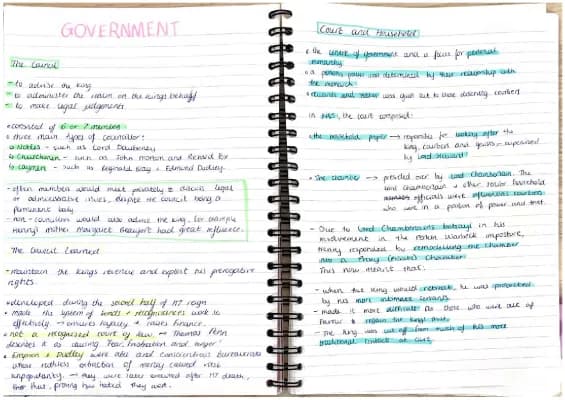 GOVERNMENT
The Council
- to advise the king
- to administer the realm on the kings behalf
- to make legal judgements
• consisted of 6 or 7 members
• three main types of councillor:
Nobles - such as Lord Daubeney
Churchmen - such as John Morton and Richard Fox
Laymen - such as Reginald Bray + Edmund Dudley.
- often members would meet privately to discuss legal
or administrative issues, despite the council being a
permanent body
- non-councillors would also advise the king. for example
Henry's mother Margaret Beaufort had great influence.
The Council Learned
- maintain the kings revenue and exploit his prerogative
rights.
• developed during the second half of H7 reign
• made the system of bonds + recognisances work so
effectively → ensures loyalty + raises finance.
• not a recognised court of law → Thomas Penn
describes it as causing 'fear, frustration and anger'
• Empson + Dudley were able and conscientious bureaucrats
whose ruthless extraction of money caused
unpopularity. → they were later executed after H7 death,
proving how hated they were.
Court and Household
• the centre of government and a focus for personal
monarchy
• a persons power was determined by their relationship with
the monarch
• rewards and status was given out to those deserving courtiers
In 1485, the court comprised:
• the household proper → responsible for looking after the
king, courtiers and guests - supervised
by Lord Steward
• The chamber → presided over by Lord Chamberlain. The
lord chamberlain + other senior household
officials were influential courtiers
who were in a position of power and trust.
- Due to Lord Chamberlains betrayal in his
involvement in the Perkin Warbeck imposture,
Henry responded by remodelling the chamber
into a Privy (private) Chamber.
This now meant that:
- when the king would retreat, he was protected
by his more intimate servants
- made it more difficult for those who were out of
favour to regain the kings trust
- The king was cut off from much of his more
traditional contacts at court.